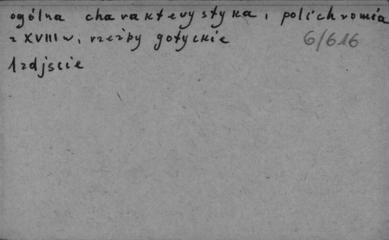 ogólna charakterystyka, polichromia
z XVIII w, rzeźby gotyckie
6/616
1 zdjście